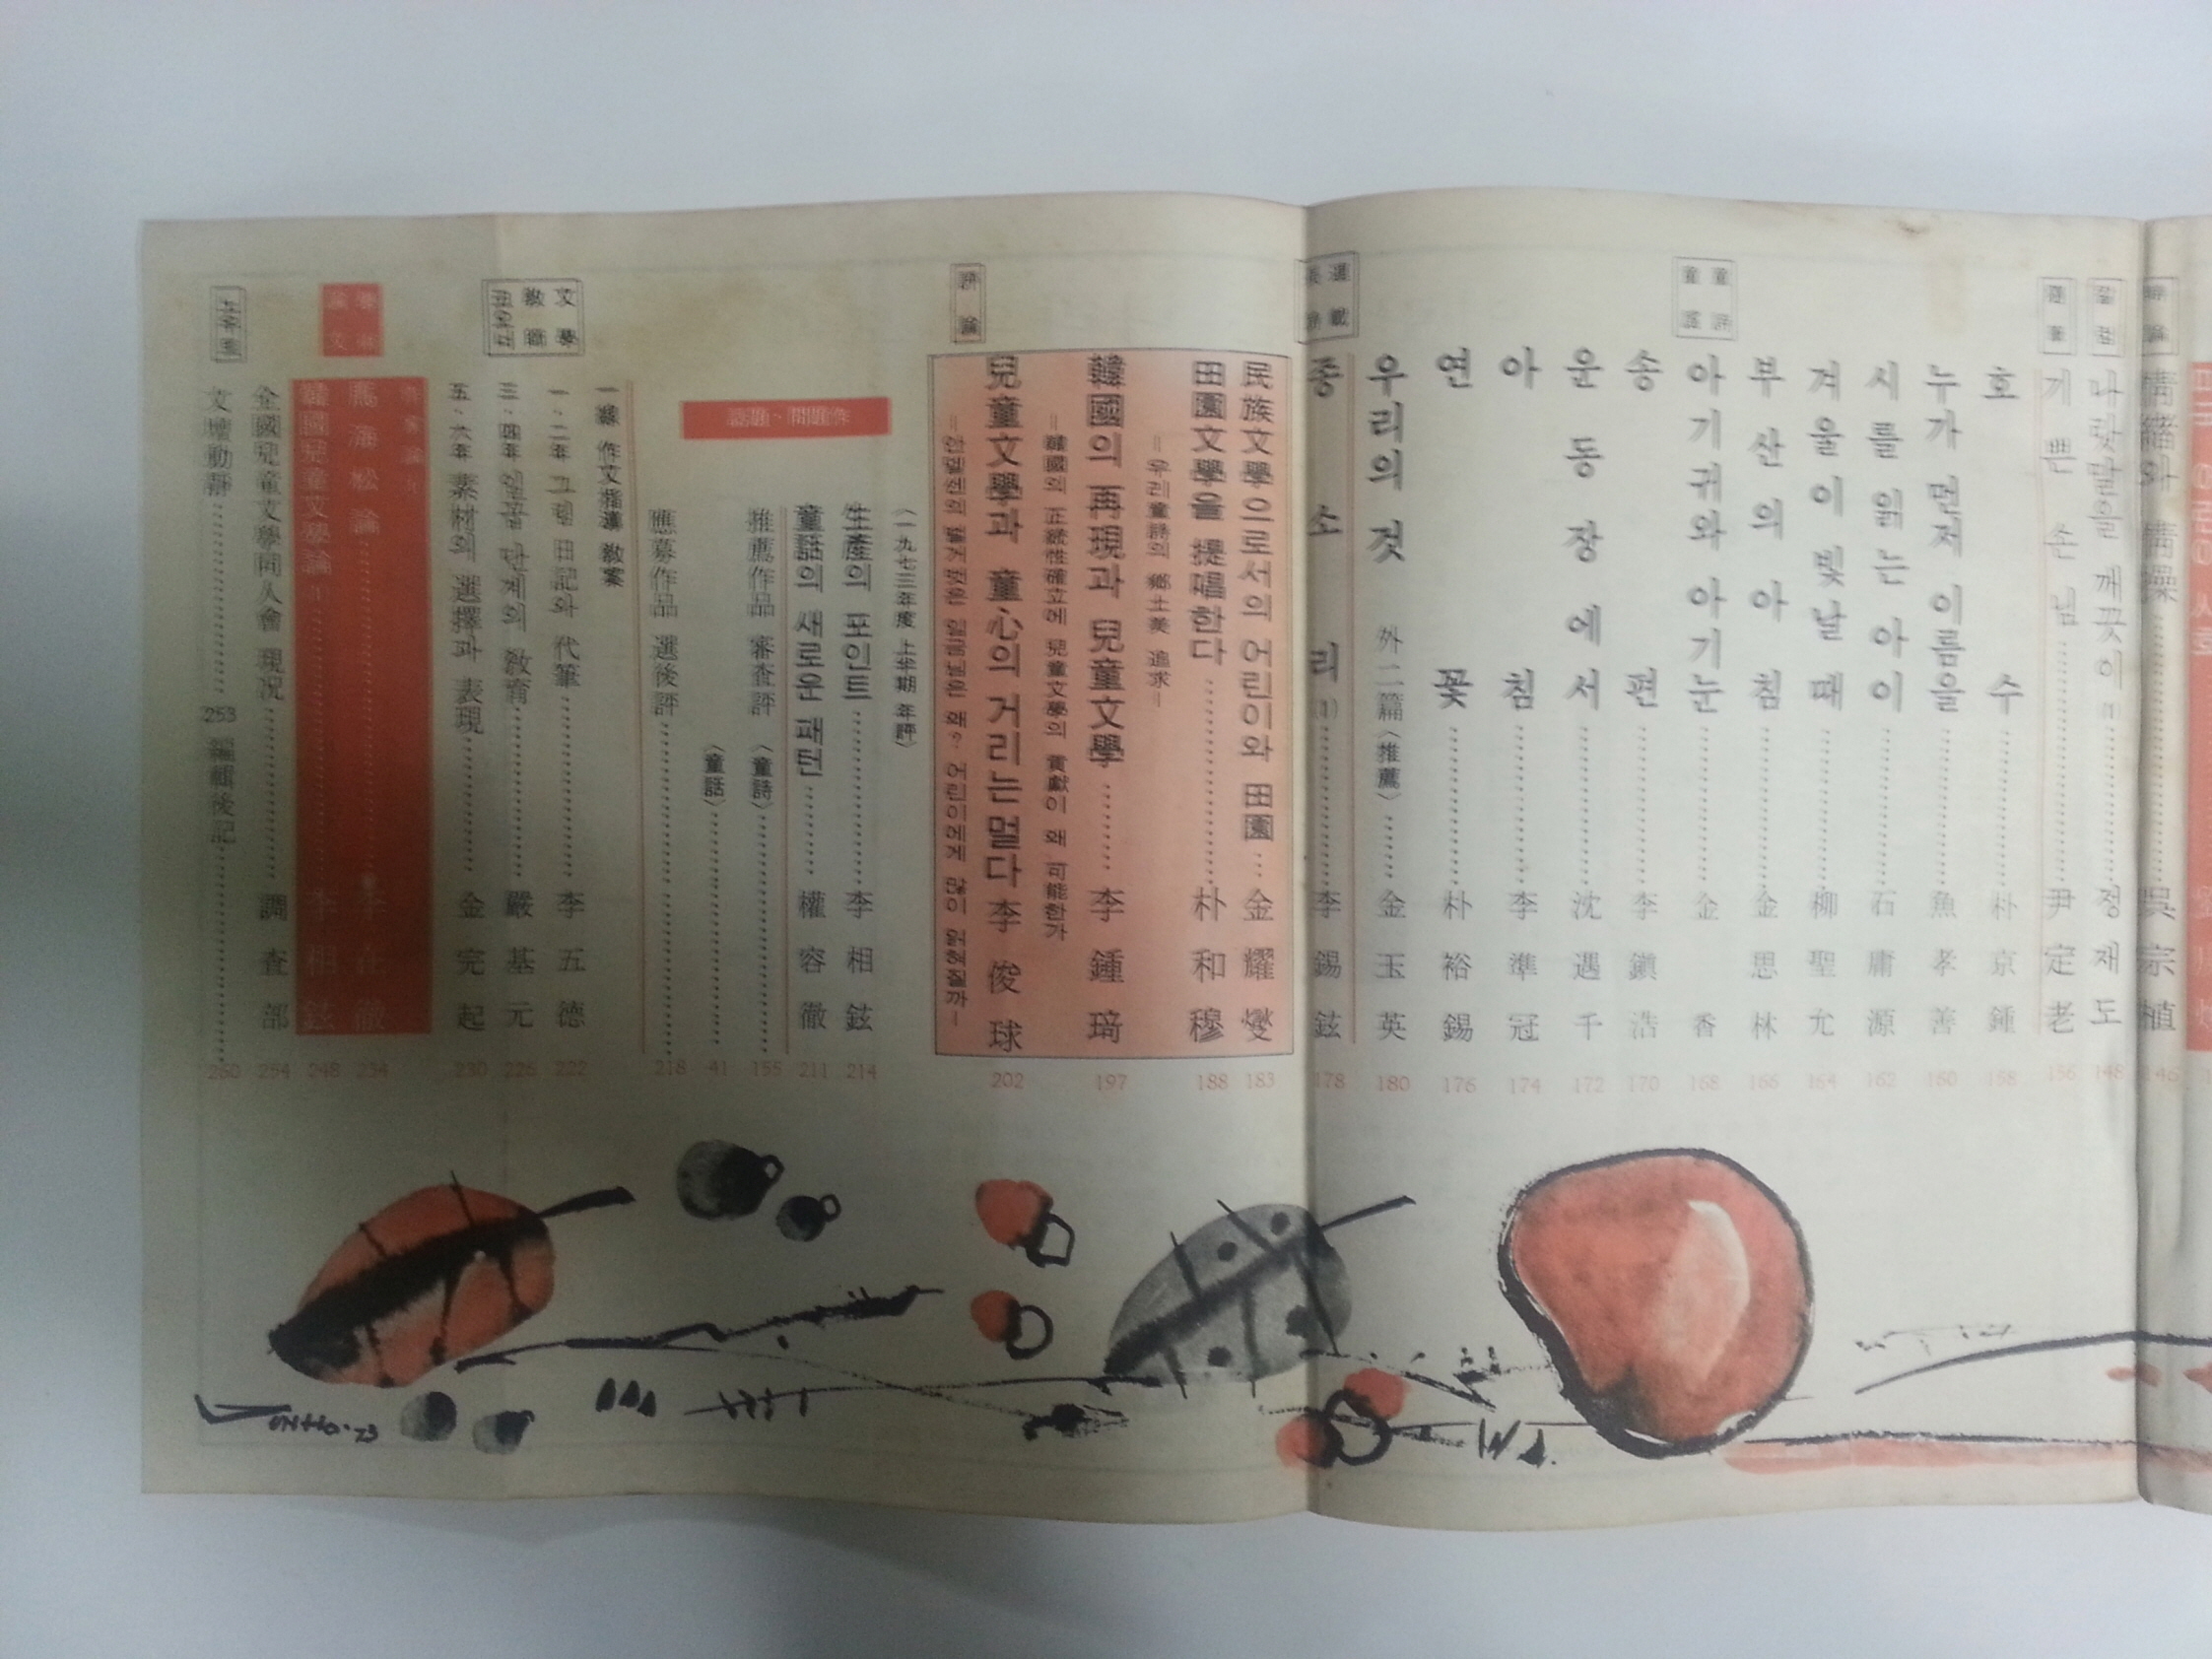 情緖와 情操 吳宗植 146
나랏말을 깨끗이 (1) 정재도 148
隨筆
기쁜 손님 尹定老 156
호수 朴京鍾 158
누가 먼저 이름을 魚孝善 160
시를 읽는 아이 石庸源 162
겨울이 빛날 때 柳聖允 164
부산의 아침 金思林 166
童詩 童謠
아기 귀와 아기 눈 金香 168
송편 李鎭浩 170
운동장에서 沈遇千 172
아침 李準冠 174
연꽃 朴裕錫 176
우리의 것 外二篇〈推薦〉 金玉英 180
連載
종소리 (1) 李錫鉉 178
民族文學으로서의 어린이와 田園 金耀燮 183
田園文學을 提唱한다 朴和穆 188
=우리 童詩의 鄕土美 追求=
韓國의 再現과 兒童文學 李鍾琦 197
=韓國의 正統性確立에 兒童文學의 貢獻이 왜 可能한가
評論
兒童文學과 童心의 거리는 멀다 李俊球 202
=안델센의 벌거벗은 임금님은 왜? 어린이에게 많이 읽혀질까=
〈一九七三年度 上半期 年評〉
生產의 포인트 李相鉉 214
童話의 새로운 패턴 權容徹 211
話題·問題作
推薦作品 審査評 〈童詩〉 155
〈童話〉 41
應募作品 選後評 218
一線 作文指導 敎案
文學敎籠
一·二年 그림日記와 代筆 李五德 222
三·四年 옮김 단계의 敎育 嚴基元 226
五·六年 素材의 選擇과 表現 金完起 230
馬海松論 李在徹 234
韓國兒童文學論 (1) 李相鉉 248
全國兒童文學同人會 現况 調査部 254
文壇動靜 253 編輯後記 260